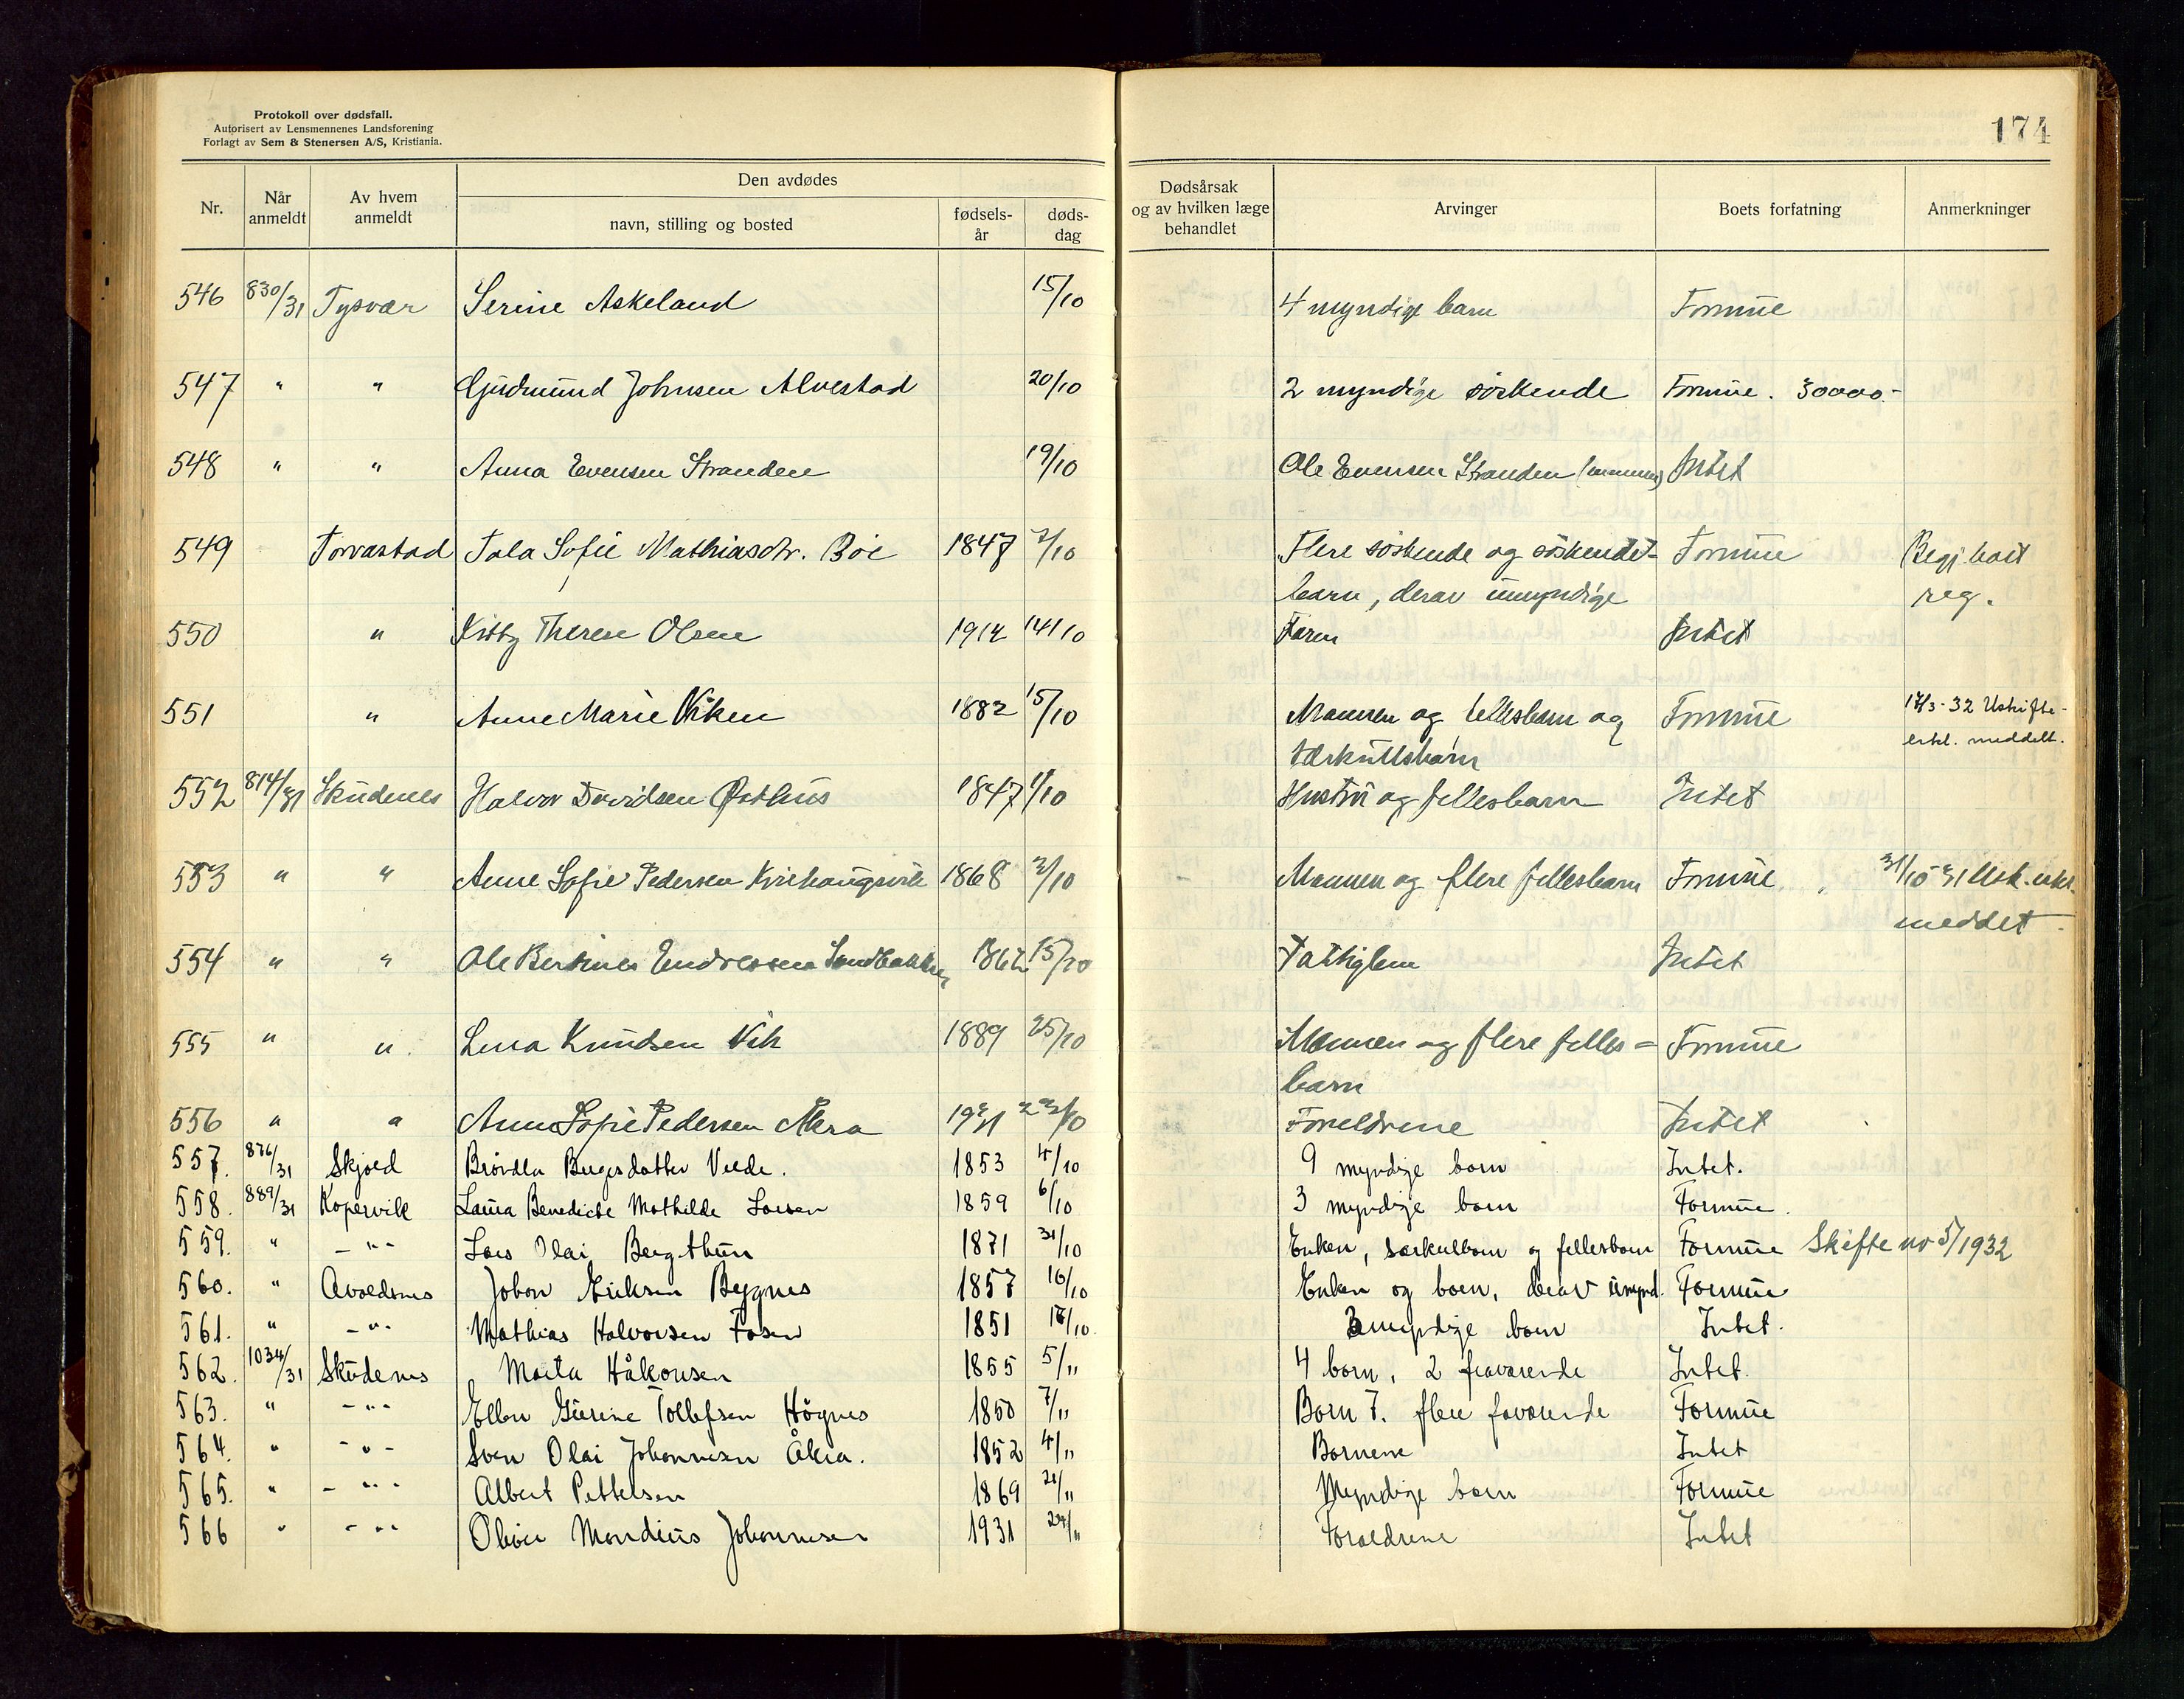 Protokoll over dødsfall.
Autorisert av Lensmennenes Landsforening
Forlagt av Sem & Stenersen A/S, Kristiania.
174
Nr. Når anmeldt Av hvem anmeldt Den avdødes navn, stilling og bosted fødsels-år døds-dag Dødsårsak og av hvilken læge behandlet Arvinger Boets forfatning Anmerkninger
546 830/31 Tysvær Serine Askeland 15/10 4 myndige barn Formue
547 " " Gudmund Johnsen Alvestad 20/10 2 myndige søskende Formue. 30000.-
548 " " Anna Evensen Stranden 19/10 Ole Evensen Stranden (mannen) Intet
549 Torvastad Tala Sofie Mathiasdtr. Bøe 1847 2/10 Flere søskende og søskende- Formue Begj. boet
barn, derav umyndige reg.
550 " Kitty Therese Olsen 1912 14/10 Faren Intet
551 " Anne Marie Viken 1882 15/10 Mannen og fellesbarn og Formue 17/3-32 Uskifte-
særkullsbarn erkl. meddelt.
552 814/31 Skudenes Halvor Davidsen Østhus 1847 1/10 Hustru og fellesbarn Intet
553 " " Anne Sofie Pedersen 1868 2/10 Mannen og flere fellesbarn Formue 31/10 31 Usk. erkl.
meddelt
554 " " Ole Bertines Endressen Sandbakken 1862 15/10 Fattiglem Intet
555 " " Lena Knudsen Vik 1889 25/10 Mannen og flere felles= Formue
barn
556 " " Anna Sofie Pedersen Åkra 1931 22/10 Foreldrene Intet
557. 876/31 Skjold Brøvdla Bergesdatter Velde. 1853 4/10 9 myndige born Intet.
558. 889/31 Kopervik Laura Benedicte Mathilde Larsen 1859 6/10 3 myndige born Formue.
559. " - " - Lars Olai Bergthun 1871 31/10 Enken, særkulborn og fellesborn Formue Skifte nr 5/1932
560. " Avaldsnes Johan Eriksen Bygnes 1857 16/10 Enken og born, derav umynd. Formue
561. " - " - Mathias Halvorsen Fosen 1851 18/10. 3 myndige born Intet.
562. 1034/31 Skudenes Marta Håkonsen 1855 5/11 4 born, 2 fraværende Intet.
563. " - " - Ellen Gurine Tollefsen Høgnes 1850 7/11 Born 7. flere faværende Formue
564. " - " - Sven Olai Johannesen Åkra. 1852 4/11 Bornene Intet
565. " - " - Albert Pettersen 1869 21/11 Myndige born Formue
566 " - " - Oliver Mondius Johannesen 1931 24/11 Foraldrene Intet